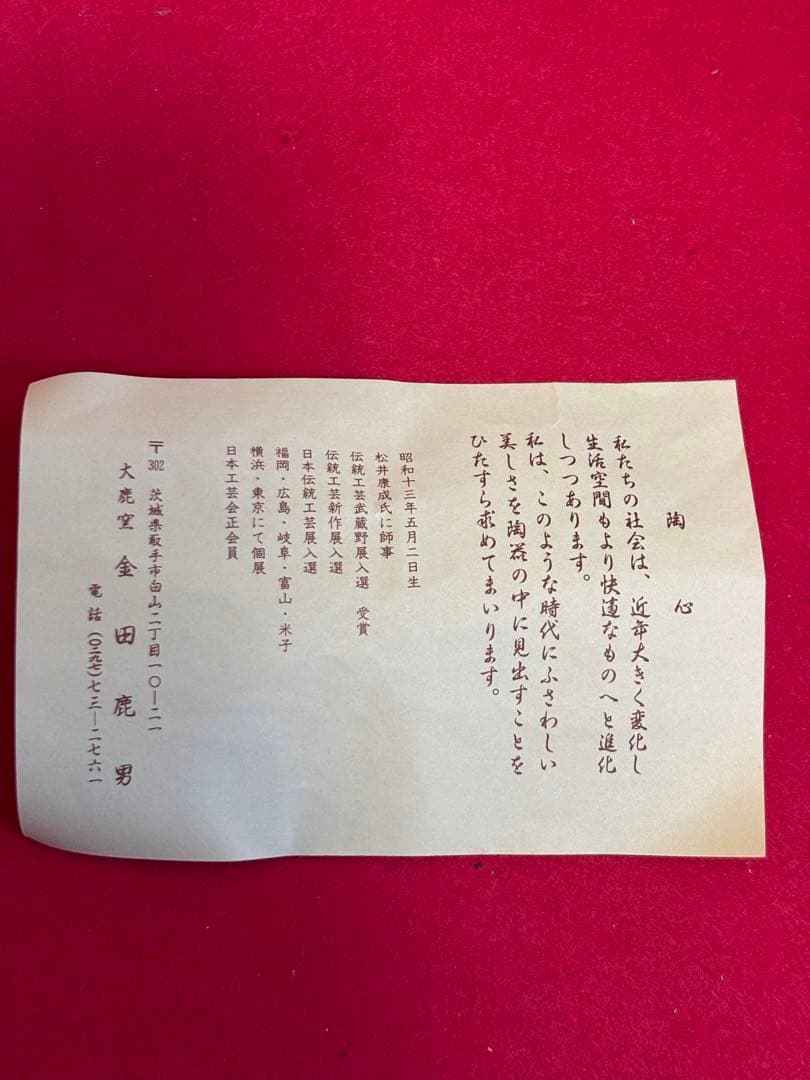 陶心
私たちの社会は、近年大きく変化し
生活空間もより快適なものへと進化
しつつあります。
私は、このような時代にふさわしい
美しさを陶器の中に見出すことを
ひたすら求めてまいります。
昭和十三年五月二日生
松井康成氏に師事
伝統工芸武蔵野展入選 受賞
伝統工芸新作展入選
日本伝統工芸展入選
福岡・広島・岐阜・富山・米子
横浜・東京にて個展
日本工芸会正会員
〒302 茨城県取手市白山二丁目一〇―二一
大鹿窯 金田鹿男
電話(〇二九七)七三―二七六一